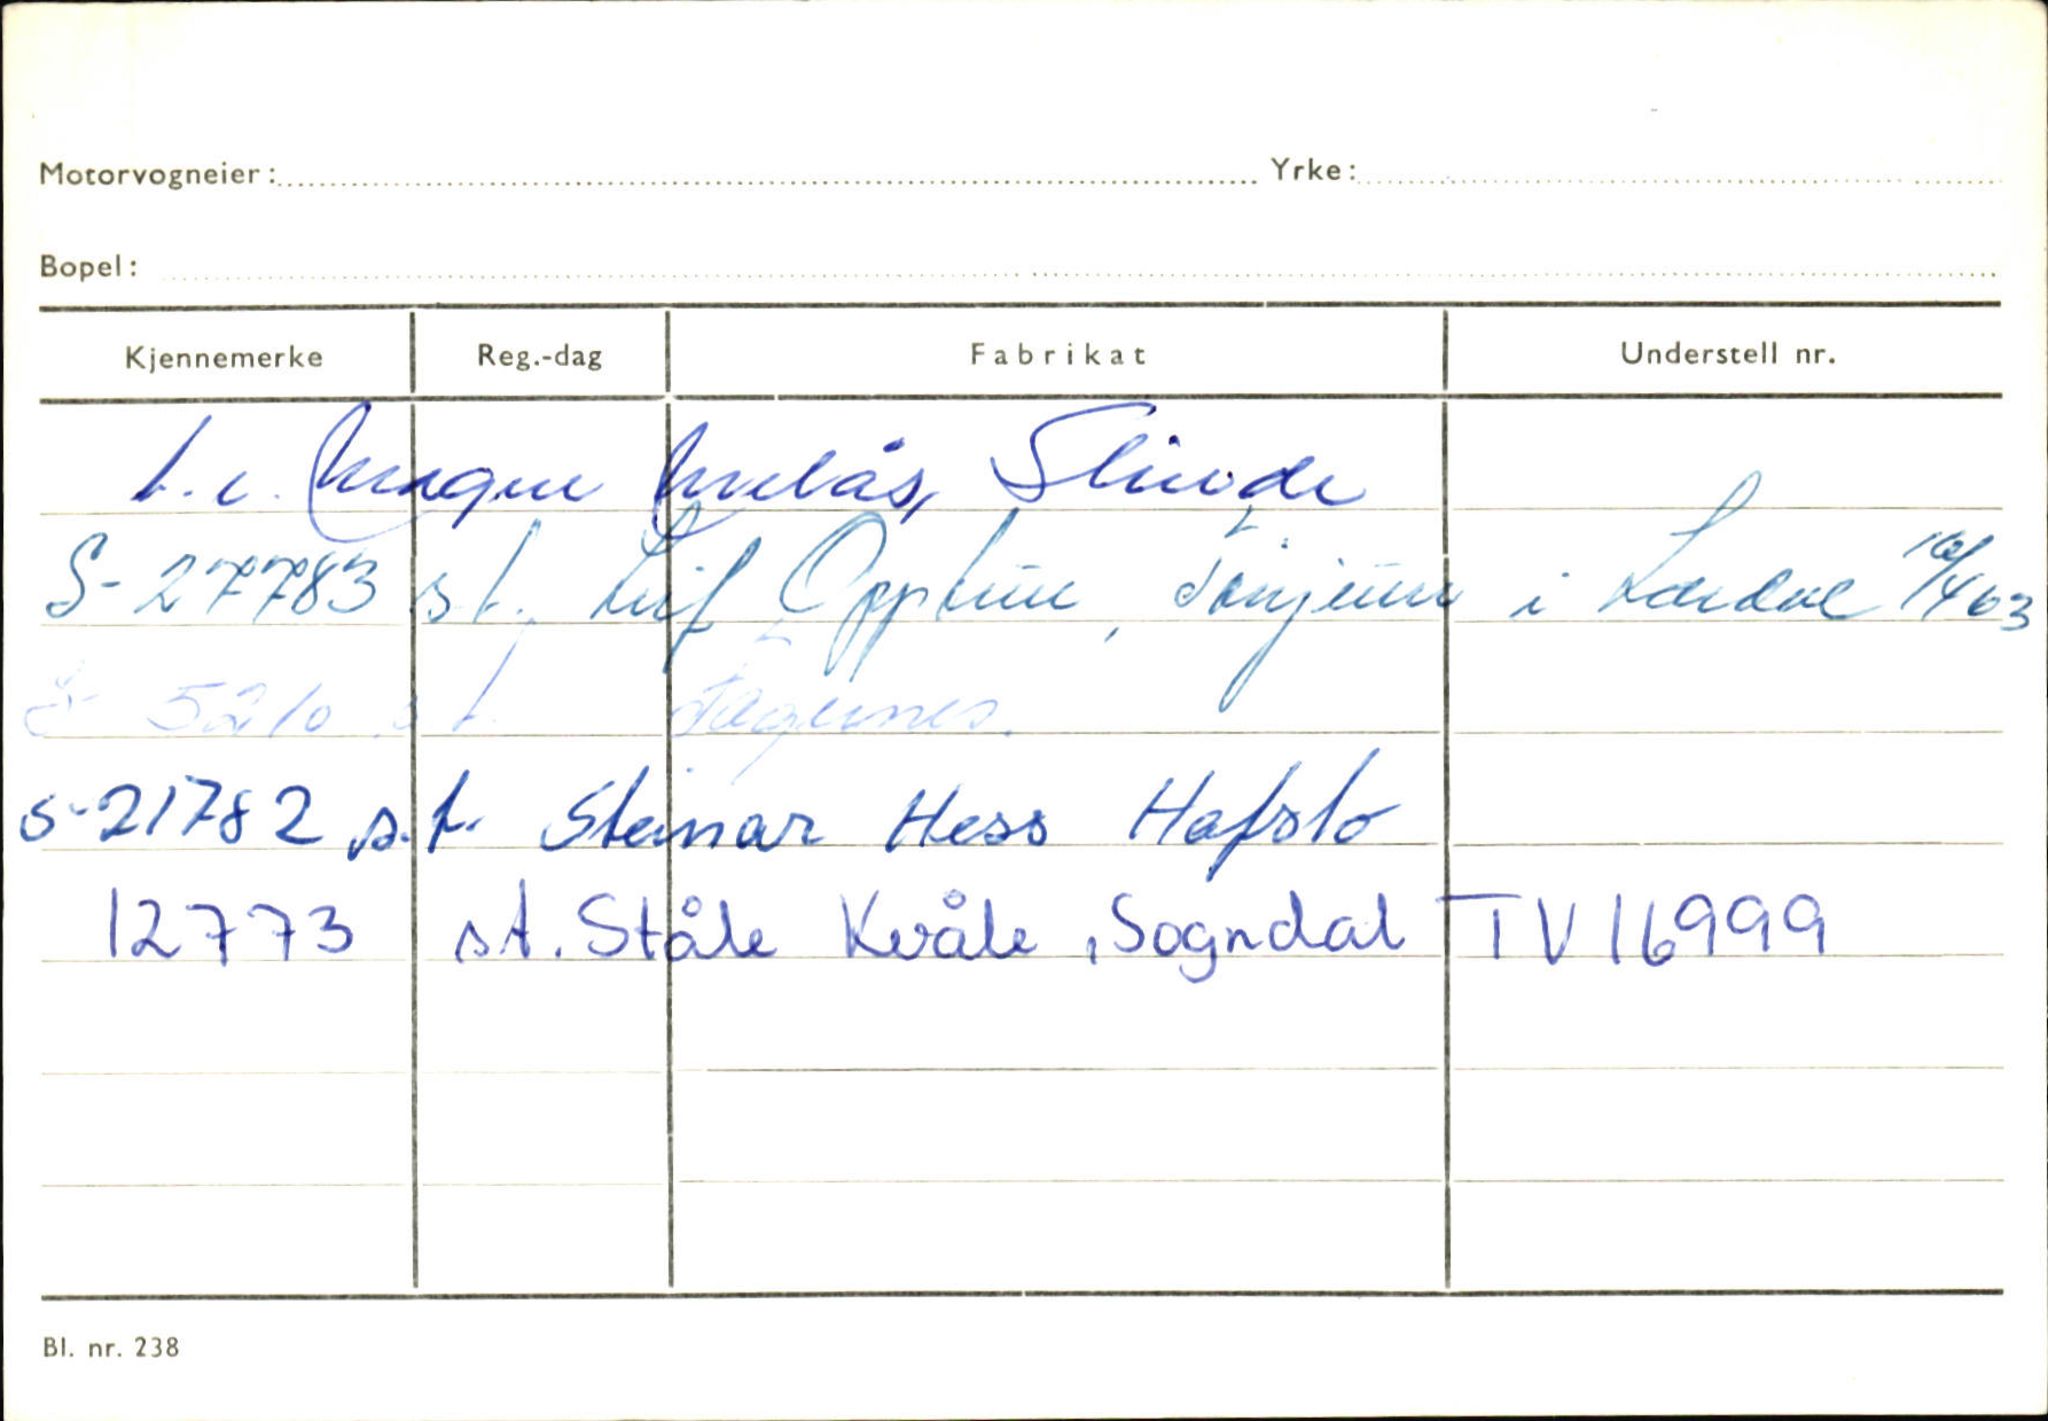 Motorvogneier: Yrke:
Bopel:
Kjennemerke Reg.-dag Fabrikat Understell nr.
t. v. Magne Melås, Slinde
S-27783 s.t. Leif Opptun, Tønjum i Lærdal 10/4 63
S- 5210 s.t. Fagernes.
S-21782 s.t. Steinar Hess Hafslo
12773 st. Ståle Kvåle, Sogndal TV16999
Bl. nr. 238